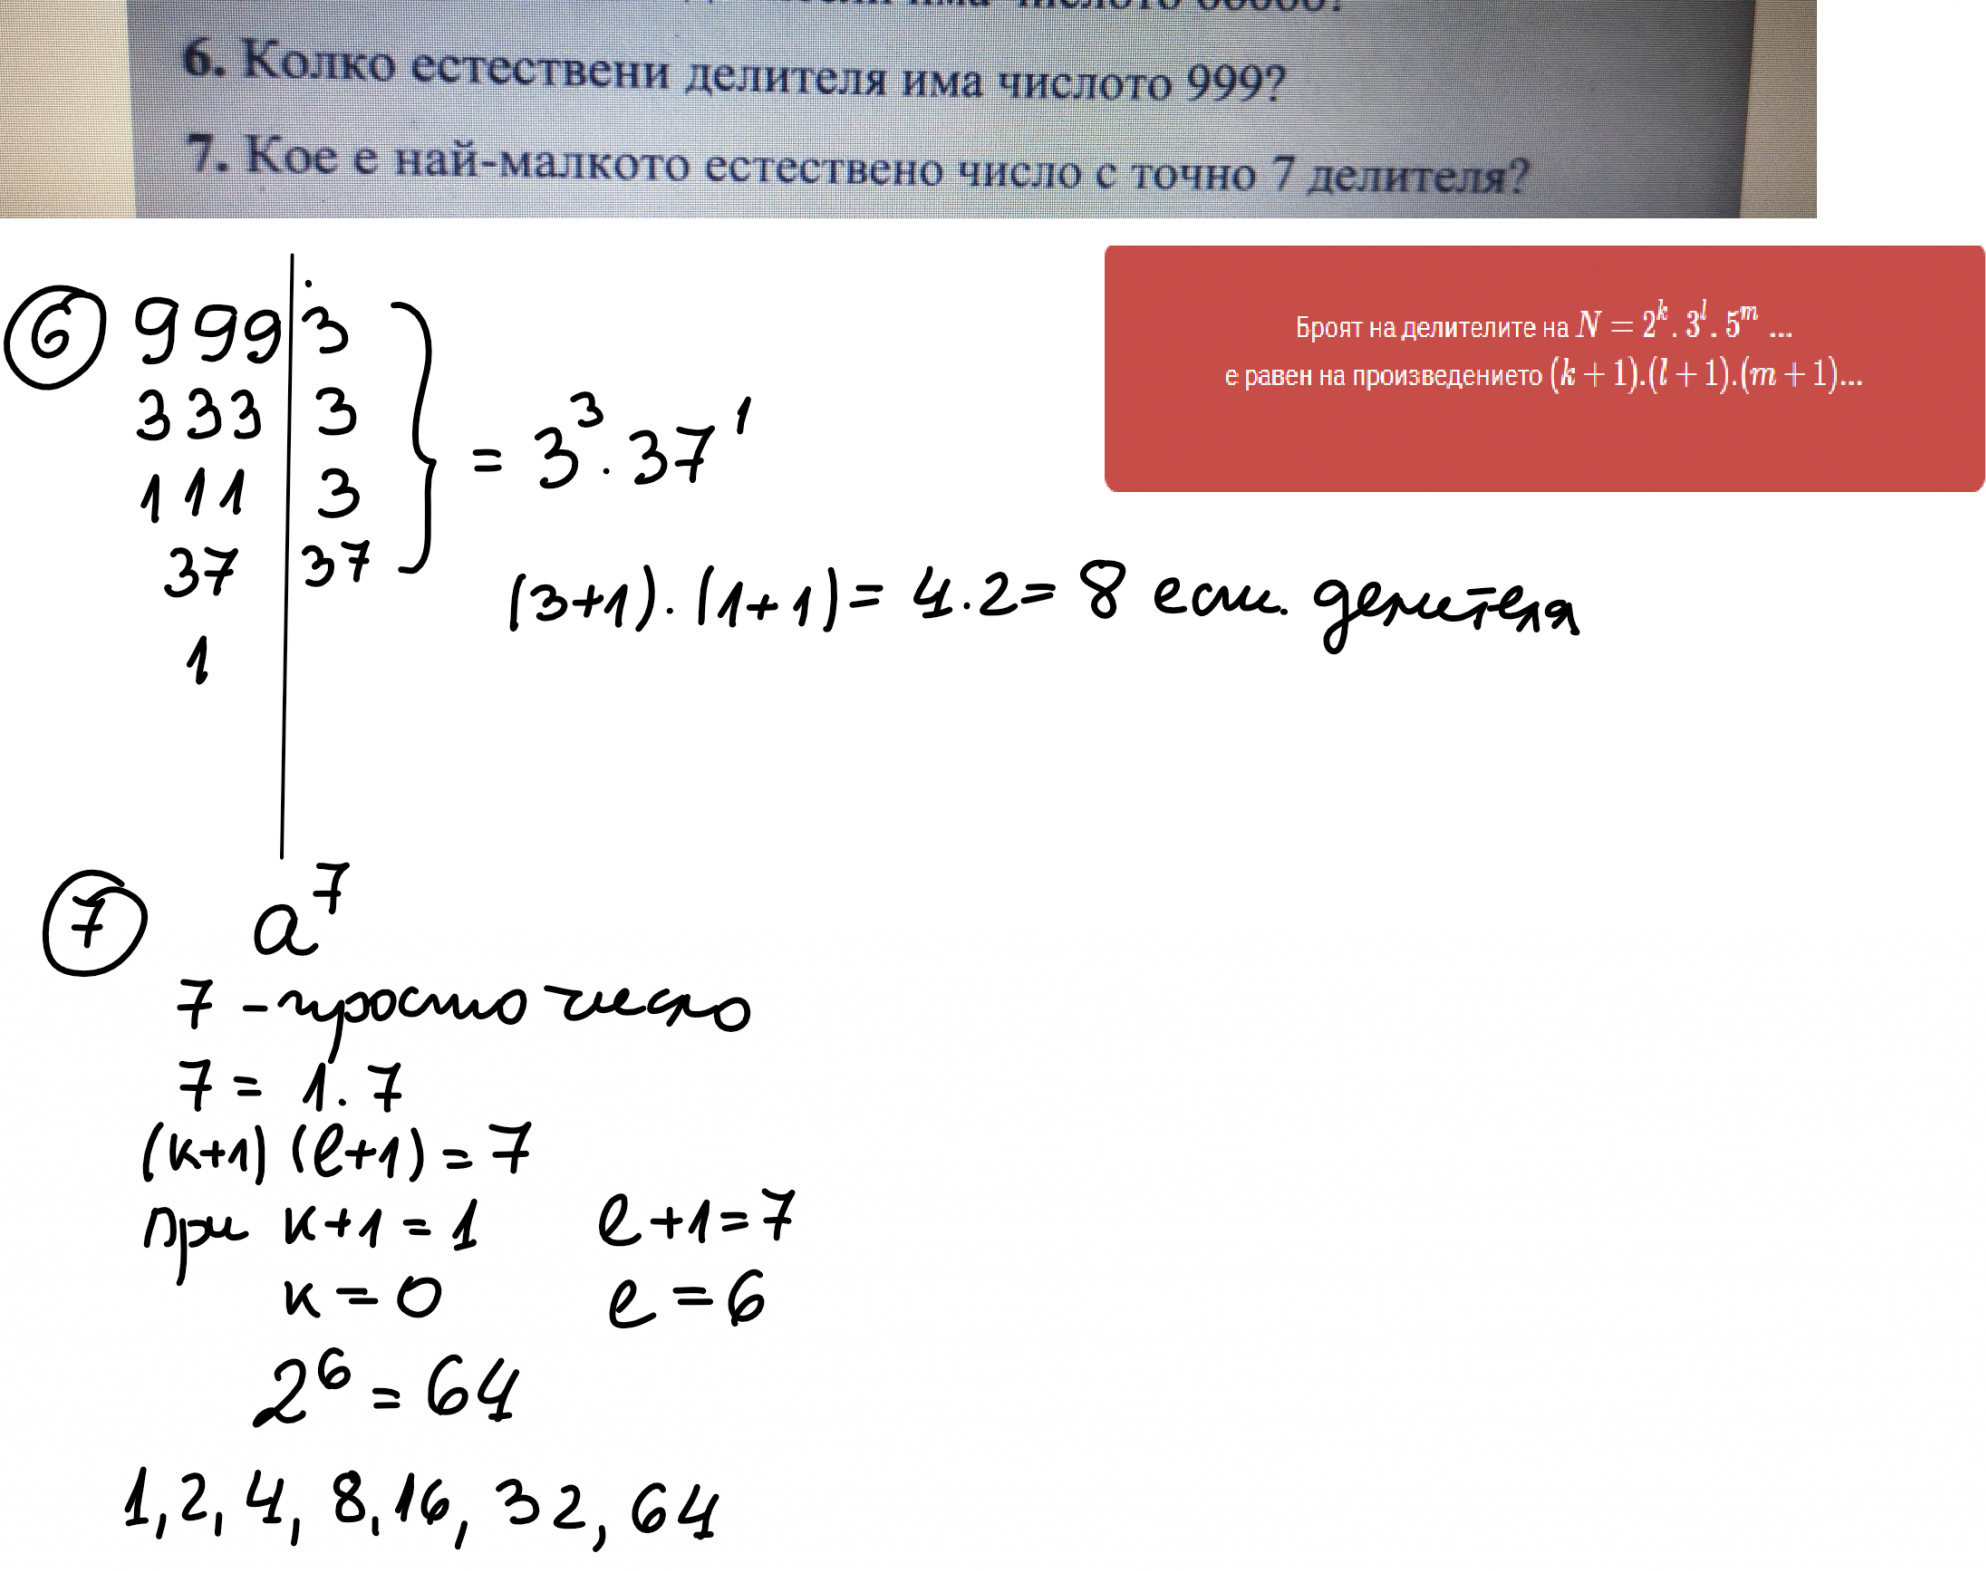 6. Колко естествени делителя има числото 999?
7. Кое е най-малкото естествено число с точно 7 делителя?
Броят на делителите на N = 2^k . 3^l . 5^m ...
е равен на произведението (k + 1).(l + 1).(m + 1)...
6 999 3
333 3
111 3
37 37
1
= 3^3 . 37^1
(3+1) . (1+1) = 4.2 = 8 ест. делителя
7 a^7
7 - просто число
7 = 1.7
(k+1) (l+1) = 7
при k+1 = 1 l+1=7
k = 0 l = 6
2^6 = 64
1, 2, 4, 8, 16, 32, 64